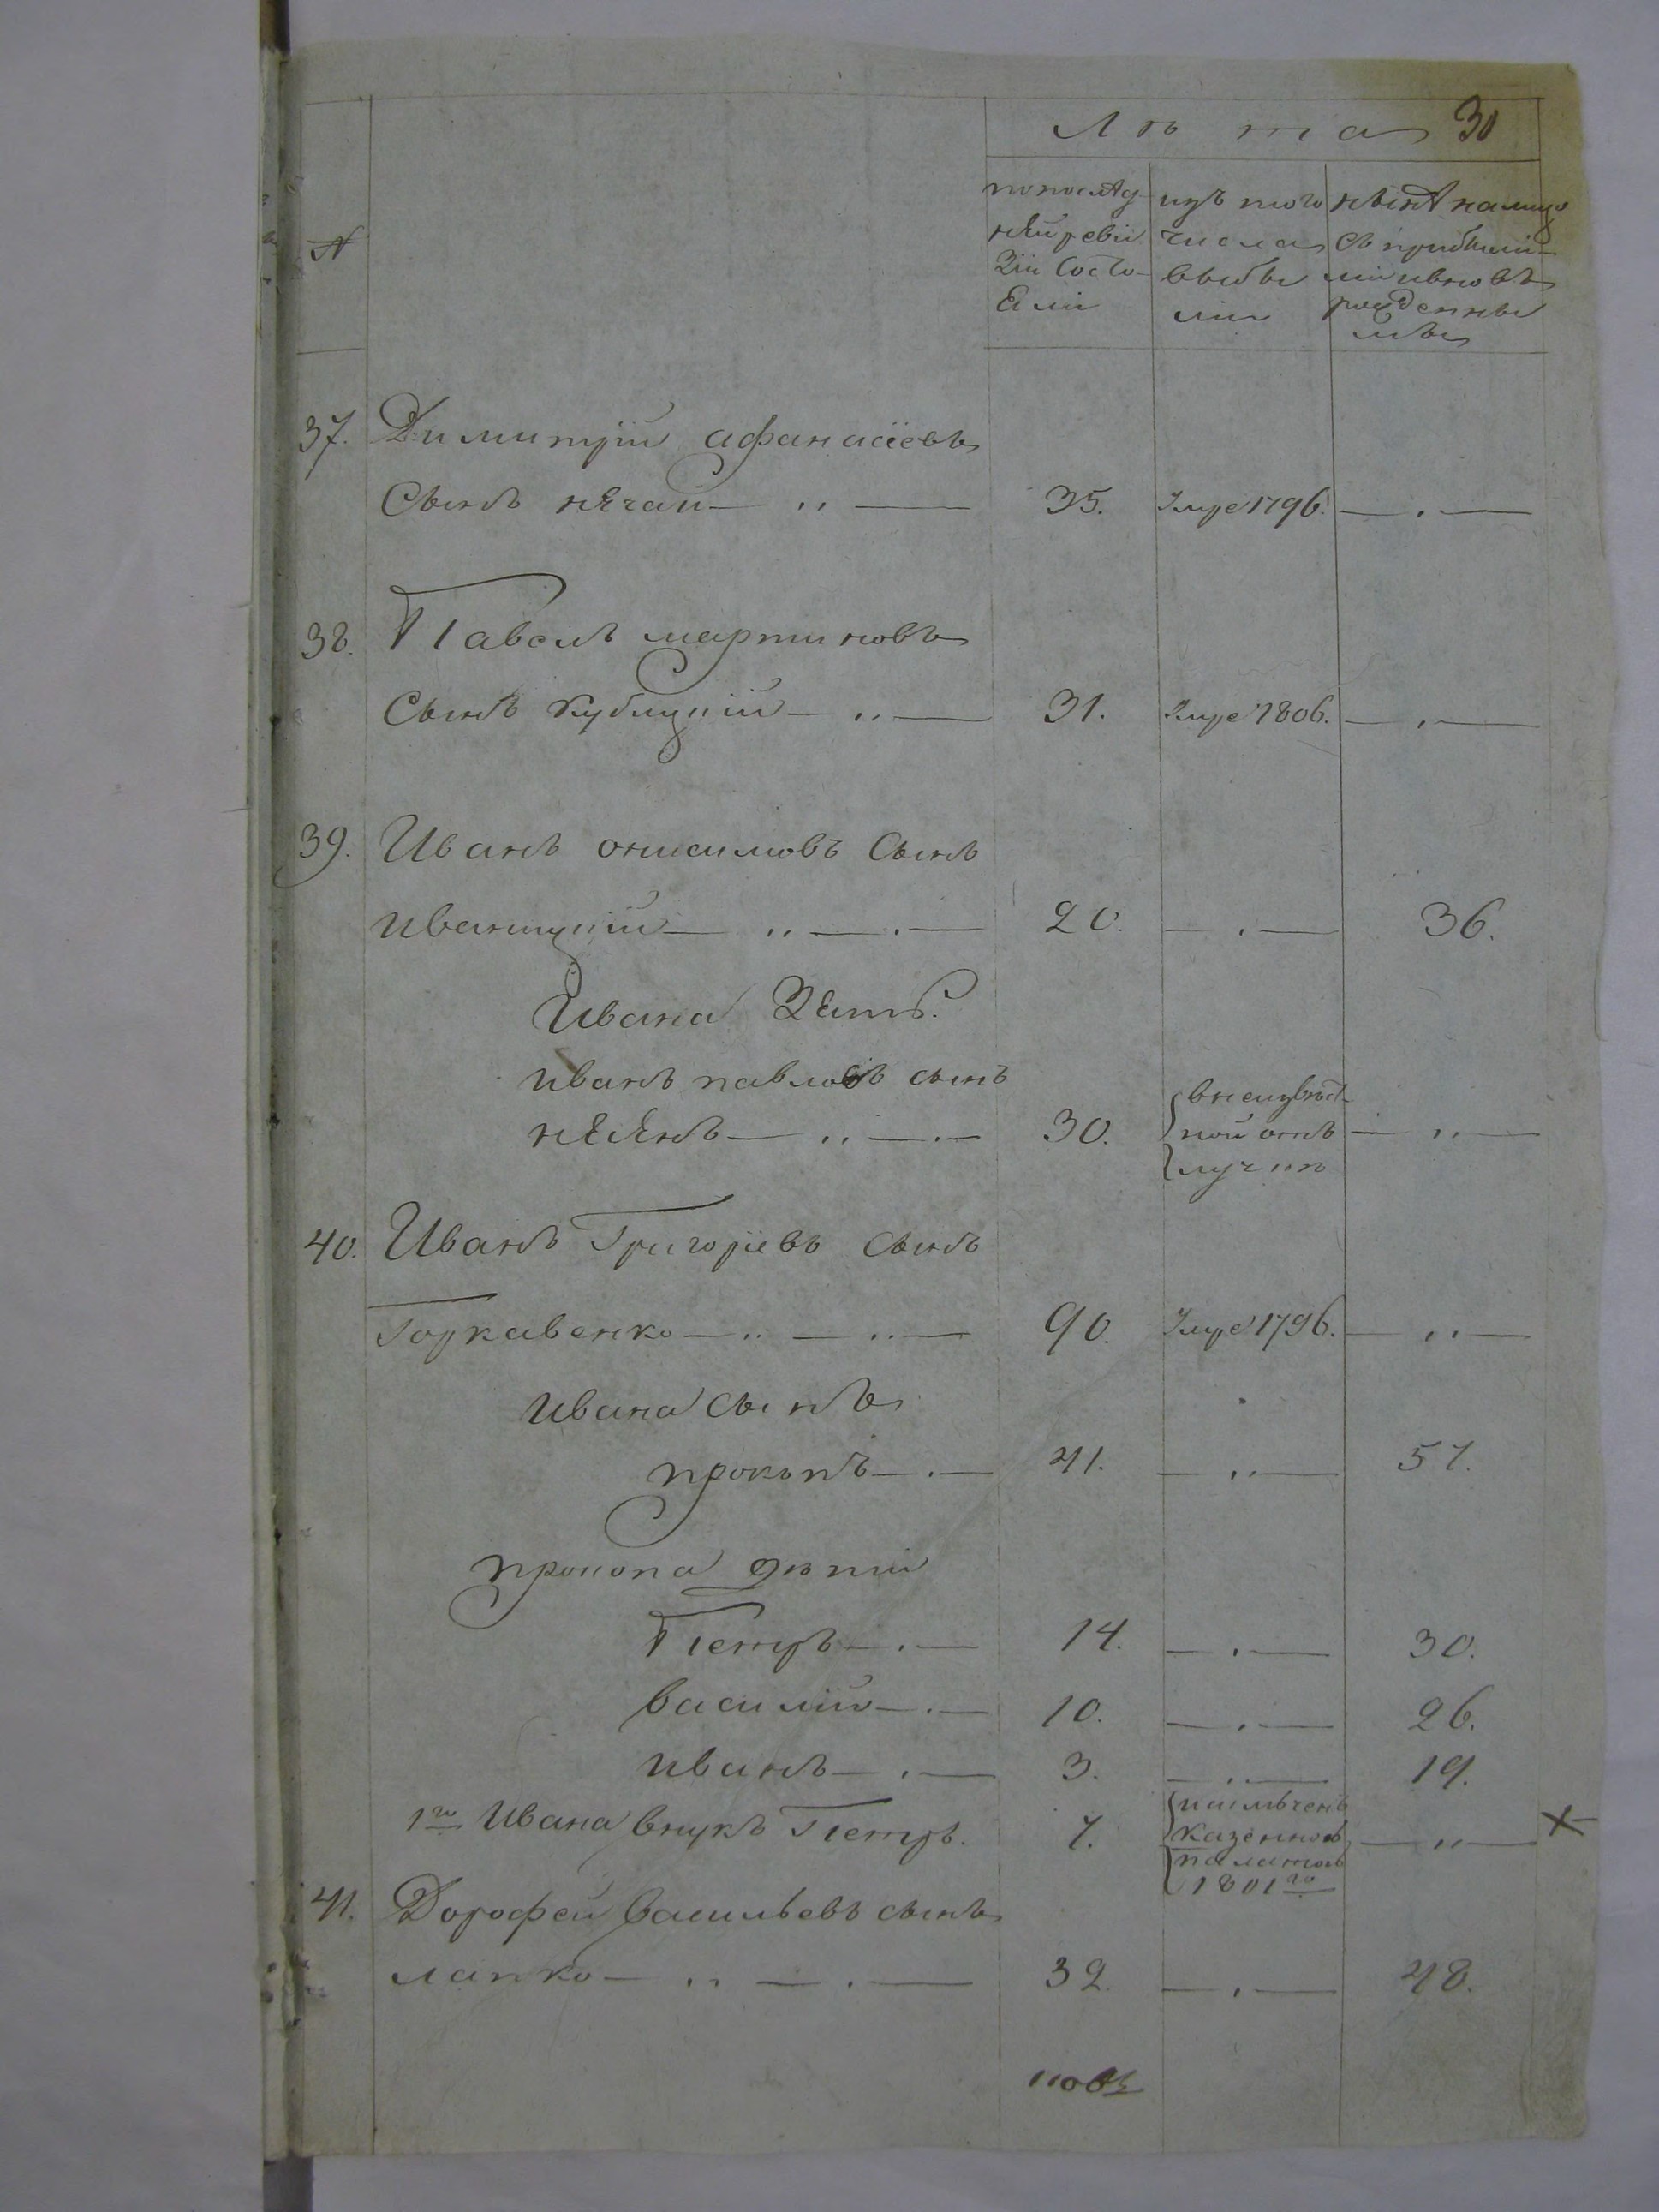 Лѣта 30
№
попослѣд
нѣй реви
зіи состо
яли
изъ того
числа
выбы
ли
нынѣ налицо
съ прибылы
ми и вновъ
рожденны
мы
37. Димитрій афанасіевъ
Сынъ нѣчай — „ — 35. Умре 1796. — . —
38. Павелъ мартиновъ
Сынъ кублицкій — „ — 31. Умре 1806. — . —
39. Иванъ онисимовъ Сынъ
иваницкій — „ — . — 20. — . — 36.
Ивана Зять.
иванъ павловъ сынъ
— „ — . — 30. внеизвѣст
ной отлъ — „ —
лучкѣ
40. Иванъ Григоріевъ Сынъ
— „ — „ — 90. Умре 1796. — „ —
Ивана Сынъ
прокопъ — . — 41. — „ — 57.
прокопа дѣти
Петръ — . — 14. — . — 30.
василій — . — 10. — . — 26.
иванъ — . — 3. — „ — 19.
1го Ивана внукъ Петръ. 7.
казенной — „ — ×
палатой
1801го
41. Дорофей васильевъ сынъ
лапко — „ — . — 32. — . — 48.